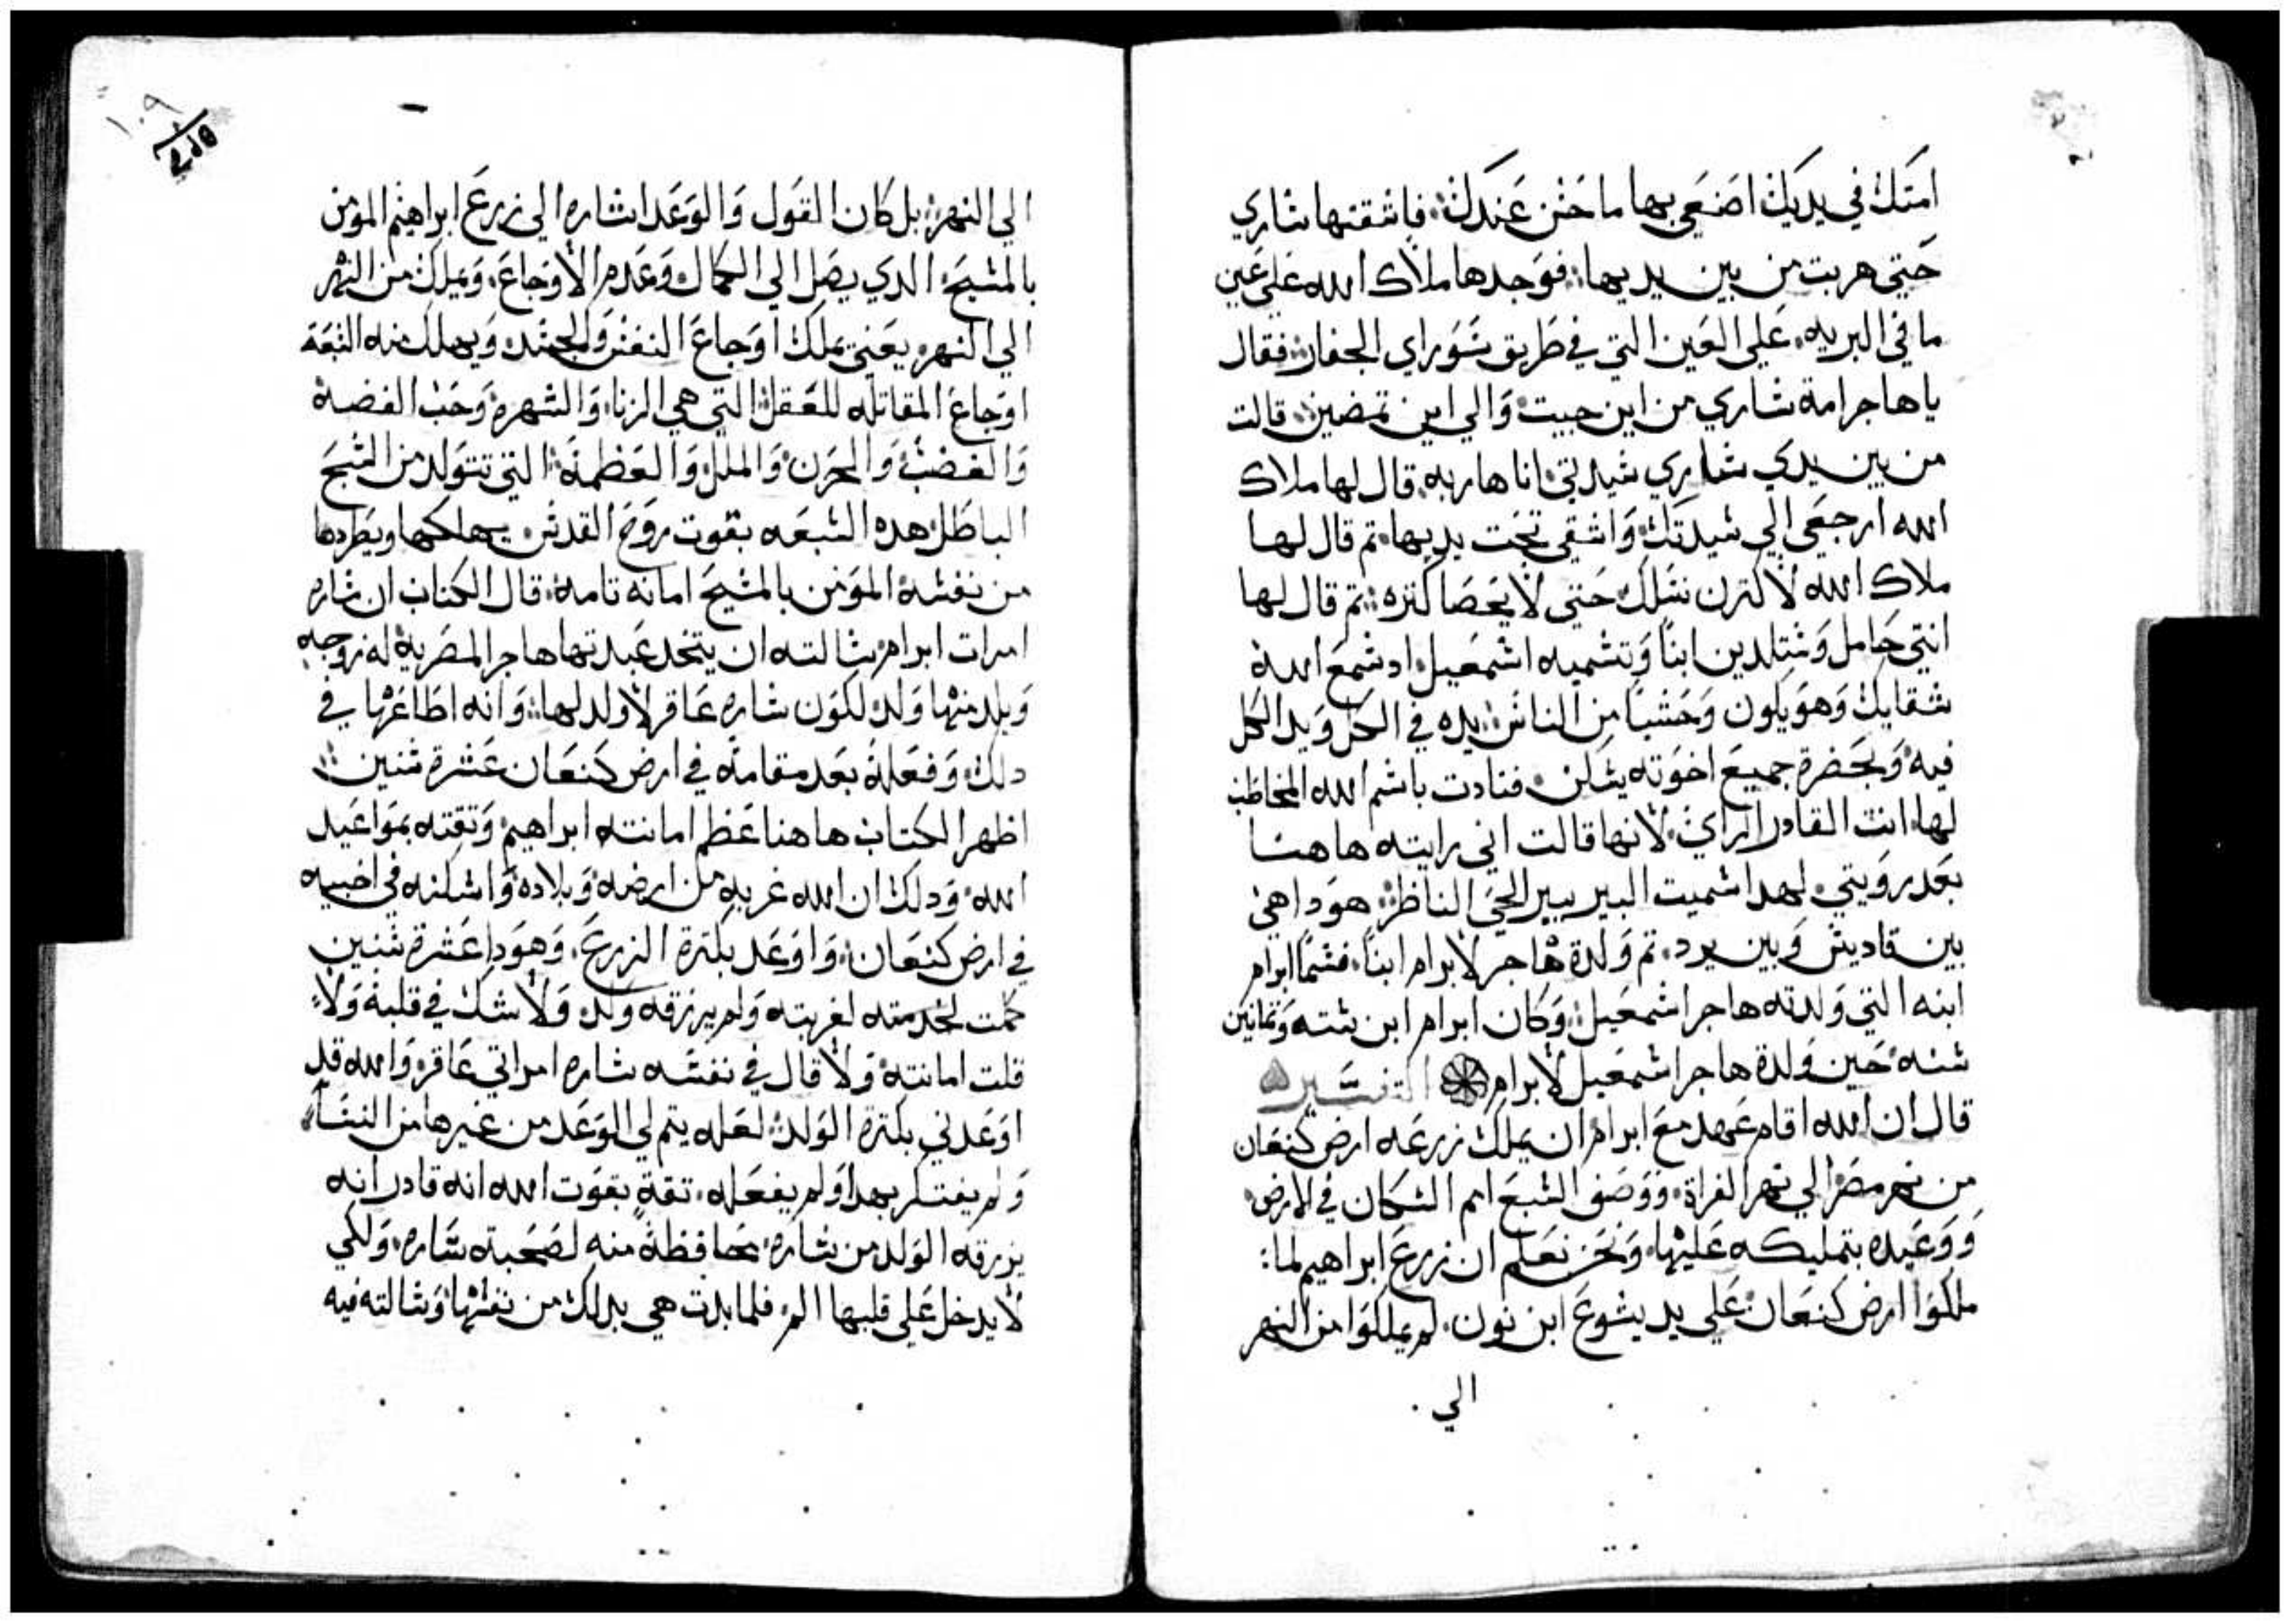 امتك في يديك اصنعي بها ما حسن عندك فاشقتها ساري
حتي هربت من بين يديها فوجدها ملاك الله علي عين
ما في البريه علي العين التي في طريق سور اي الجفار فقال
يا هاجر امة ساري من اين جيت والي اين تمضين قالت
من بين يدي ساري سيدتي انا هاربه قال لها ملاك
الله ارجعي الي سيدتك واشقي تحت يديها تم قال لها
ملاك الله لاكترن نسلك حتي لا يحصا كتره تم قال لها
انتي حامل وستلدين ابنا وتسميه اسمعيل اد سمع الله
شقايك وهو يكون وحشيا من الناس يده في الكل ويد الكل
فيه وبحضرة جميع اخوته يسكن فنادت باسم الله المخاطب
لها انت القادر الراي لانها قالت اني رايته هاهنا
بعد رويتي لهدا سميت البير بير الحي الناظر هودا هي
بين قاديش وبين برد تم ولدة هاجر لابرام ابنا فسما ابرام
ابنه التي ولدته هاجر اسمعيل وكان ابرام ابن سته وتمانين
سنه حين ولدة هاجر اسمعيل لابرام التفسير
قال ان الله اقام عهد مع ابرام ان يملك زرعه ارض كنعان
من نهر مصر الي نهر الفراة ووصف السبع امم السكان في الارض
ووعيده بتمليكه عليها ونحن نعلم ان زرع ابراهيم لما
ملكوا ارض كنعان علي يد يشوع ابن نون لم يملكوا من النهر
الي
١٠٩
الي النهر بل كان القول والوعد اشاره الي زرع ابراهيم المومن
بالمسيح الدي يصل الي الكمال وعدم الاوجاع ويملك من النهر
الي النهر يعني يملك اوجاع النفس والجسد ويهلك منه السبعه
اوجاع المقاتله للعقل التي هي الزنا والشهوه وحب الفضة
والغضب والحزن والملل والعظمة التي تتولد من السبح
الباطل هده السبعه بقوت روح القدس يهلكها ويطردها
من نفسه المومن بالمسيح امانه تامة قال الكتاب ان ساره
امرات ابرام سالته ان يتخد عبدتها هاجر المصرية له زوجه
ويلد منها ولد لكون ساره عاقر لا ولد لها وانه اطاعها في
دلك وفعله بعد مقامه في ارض كنعان عشرة سنين
اظهر الكتاب هاهنا عظم امانته ابراهيم وتقته بمواعيد
الله ودلك ان الله غربه من ارضه وبلاده واسكنه في اخبيه
في ارض كنعان واوعد بكترة الزرع وهودا عشرة سنين
كملت لخدمته لغربته ولم يرزقه ولد ولا شك في قلبه ولا
قلت امانته ولا قال في نفسه ساره امراتي عاقر والله قد
اوعدني بكترة الولد لعله يتم لي الوعد من غيرها من النسا
ولم يفتكر بهدا ولم يفعله تقة بقوت الله انه قادر انه
يزرقه الولد من ساره محافظة منه لصحبته ساره ولكي
لا يدخل علي قلبها الم فلما بدت هي بدلك من نفسها وسالته فيه